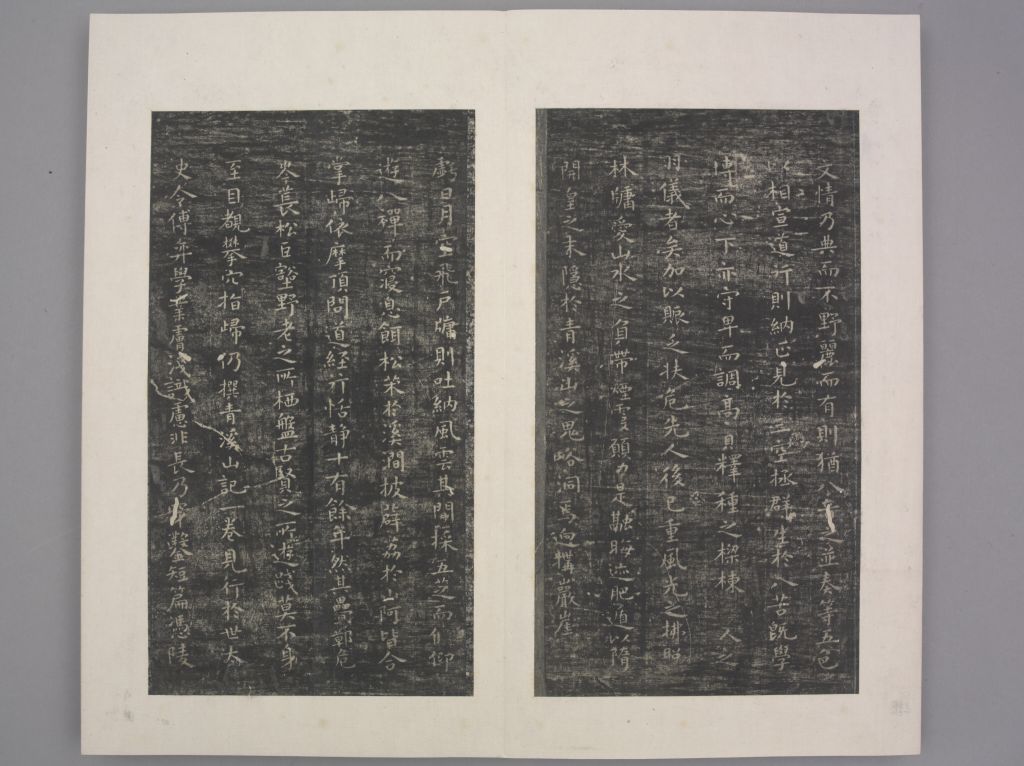 文情乃典而不野麗而有則猶八音之並奏等五色
以相宣道行則納正見於三空拯群生於八苦既學
博而心下亦守卑而調高真釋種之樑棟 人之
羽儀者矣加以賑乏扶危先人後己重風光之排
林牖愛山水之負帶煙雲願力是融晦迹肥遁以隋
開皇之末隱於青溪山之鬼峪洞焉迥構巖崖
虧日月空飛戶牖則吐納風雲其間採五芝而偃仰
遊八禪而寢息餌松苿於溪澗披薜荔於山阿皆合
掌歸依摩頂問道經行恬靜十有餘年然其疊鄣危
岑長松巨壑野老之所栖盤古賢之所遊踐莫不身
至目覩攀穴指歸仍撰青溪山記一卷見行於世太
史令傅弈學業膚淺識慮非長乃穿鑿短篇憑陵